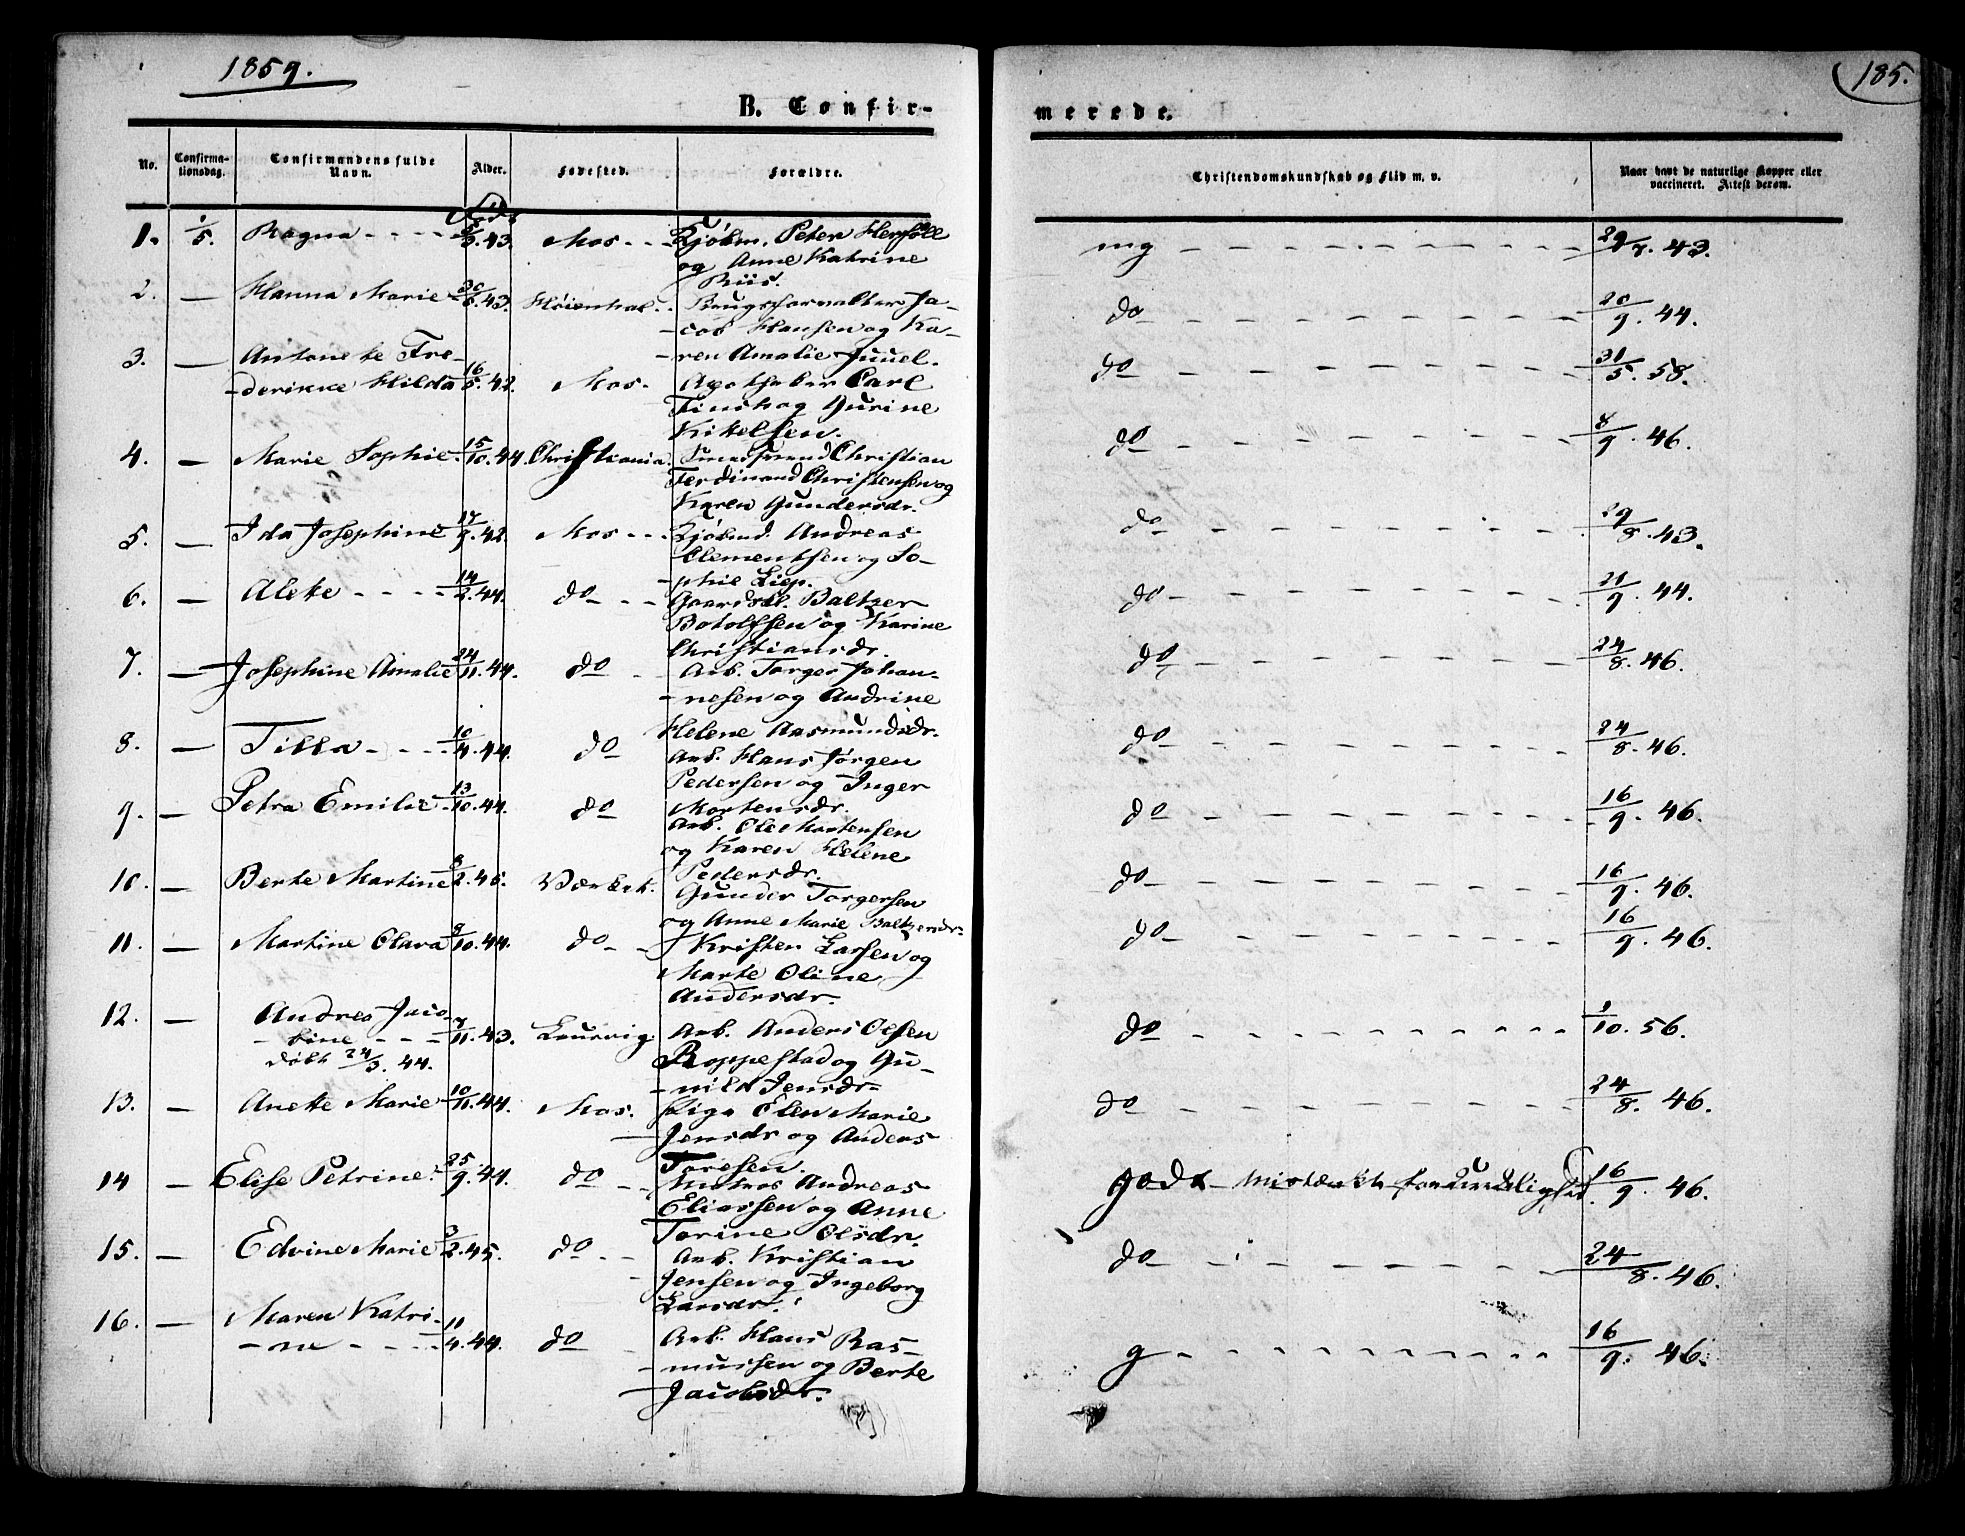 1859.
185.
B. Confir-
merede.
No.
Confirma-
tionsdag.
Confirmandens fulde
Navn.
Alder.
Fødested.
Forældre.
Christendomskundskab og Flid m. v.
Naar havt de naturlige Kopper eller
vaccineret. Attest derom.
1. 1/5. Ragna - - - - 43. Mos - - - Kjøbm. Peter
og Anne Katrine
Riis.
mg - - - 29/7. 43.
2. — Hanna Marie - 30/6. 43. Høienhal. Brugsforvalter Ja-
- cob Hansen og Ka-
- ren Amalie Juuel.
do - - - 20/9. 44.
3. — Antonette Fre-
- derikke Hilda 16/5. 42. Mos. Apotheker Carl
og Gurine
Kikelsen.
do - - - 31/5. 58.
4. — Marie Sophie. 15/10. 44. Christiania. Christian
Ferdinand Christensen og
Karen Gundersdr.
do - - - 8/9. 46.
5. — Ida Josephine 17/9. 42. Mos - - - Kjøbmd. Andreas
Clementsen og So-
- phie Liep.
do - - - 29/8. 43.
6. — Alette - - - - 14/2. 44. do - - - Gaardsel. Baltzer
Botolfsen og Karine
Christiansdr.
do - - - 21/9. 44.
7. — Josephine Amalie 24/11. 44. do - - Arb. Torger Johan-
- nesen og Andrine
Helene Aasmundsdr.
do - - - 24/8. 46.
8. — Tilla - - - - 10/4. 44. do Arb. Hans Jørgen
Pedersen og Inger
Mortensdr.
do - - - 24/8. 46.
9. — Petra Emilie - 13/10. 44. do Arb. Ole Mortensen
og Karen Helene
Pedersdr.
do - - - 16/9. 46.
10. — Berte Martine 8/2. 45. Værket. Gunder Torgersen
og Anne Marie Baltzersdr.
do - - - 16/9. 46.
11. — Martine Clara 9/10. 44. do - - Kristen Larsen og
Marte Oline
Andersdr.
do - - - 16/9. 46.
12. — Andrea Jaco-
- bine - - - 7/11. 43. Laurvig. Arb. Anders Olsen
døbt 24/3. 44. Roppestad og Gu-
- nild Jensdr.
do - - - 1/10. 56.
13. — Anette Marie - 10/11. 44. Mos. Pige Elen Marie
Jensdr og Anders
Toresen.
do - - - 24/8. 46.
14 — Elise Petrine. 25/9. 44. do - - Matros Andreas
Eliassen og Anne
Torine Olsdr.
godt - mistænkt for 16/9. 46.
15. — Edvine Marie 3/2. 45. do - - Arb. Kristian
Jensen og Ingeborg
Larsdr.
do - - - 24/8. 46.
16. — Maren Katri-
- ne - - - - 11/4. 44. do - Arb. Hans Ras-
- mussen og Berte
Jacobsdr.
g - - - 16/9. 46.